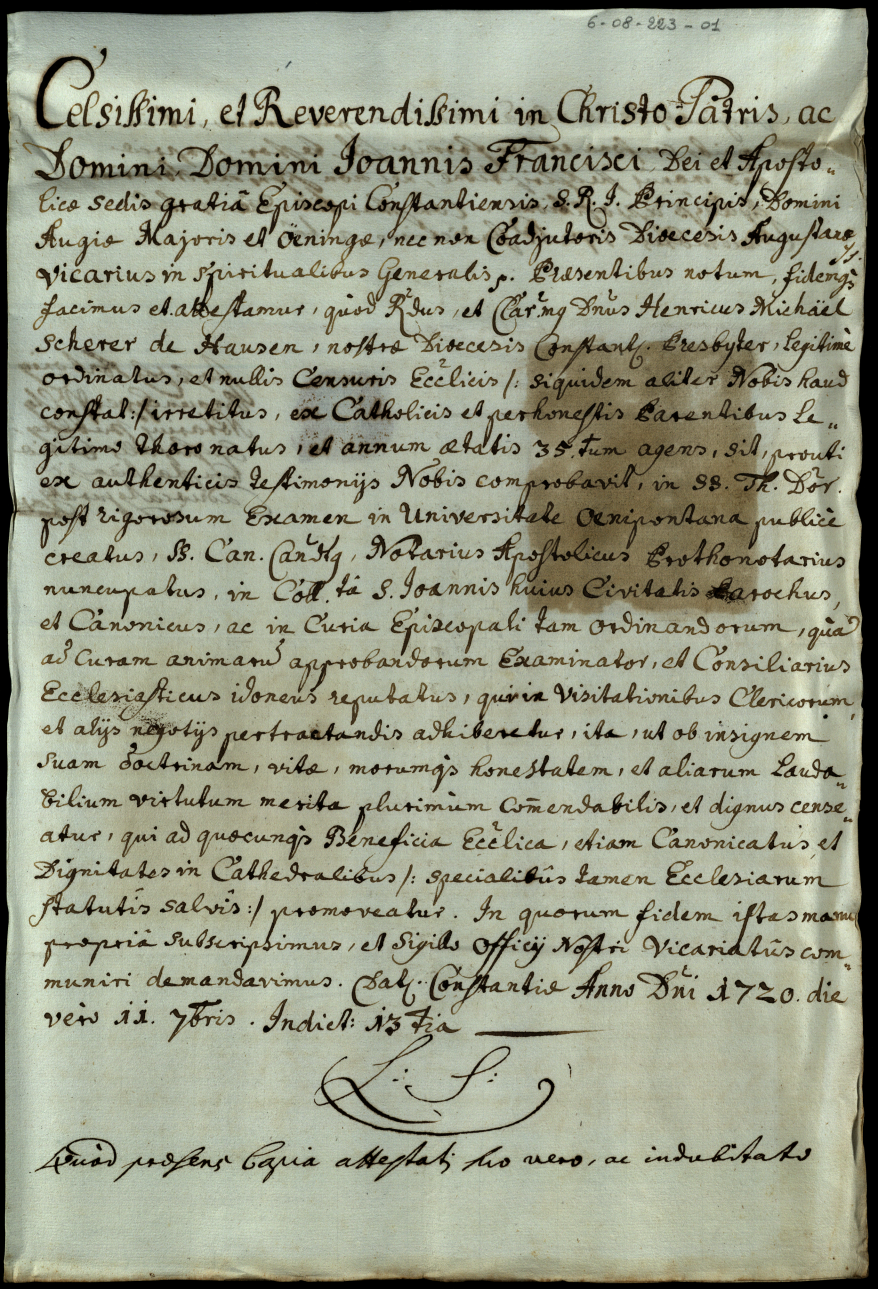 6-08-223-01
Celsissimi, et Reverendissimi in Christo Patris, ac
Domini, Domini Joannis Francisci Dei et Aposto„
licæ Sedis gratiâ Episcopi Constantiensis, S. R. J. Principis, Domini
Augiæ Majoris et Öeningæ, nec non Coadjutoris Diœcesis Augustanæ
Vicarius in Spiritualibus Generalis p. Præsentibus notum, fidemqs
facimus et attestamur, quod Rdus, et Clar. Dnus Henricus Michäel
Scherer de Hausen, nostræ Diœcesis Constant. Presbyter, legitimè
ordinatus, et nullis Censuris Ecclicis /: siquidem aliter Nobis haud
constat :/ irretitus, ex Catholicis et perhonestis Parentibus Le„
gitimo thoro natus, et annum ætatis 35.tum agens, sit, prouti
ex authenticis testimonijs Nobis comprobavit, in SS. Th. Dor.
post rigorosum Examen in Universitate Oenipontana publicè
creatus, SS. Can. Cand, Notarius Apostolicus Prothonotarius
nuncupatus, in Coll.tâ S. Joannis huius Civitatis Parochus,
et Canonicus, ac in Curia Episcopali tam ordinandorum, quà
ad Curam animarũ approbandorum Examinator, et Consiliarius
Ecclesiasticus idoneus reputatus, qui in Visitationibus Clericorum,
et alijs negotijs pertractandis adhiberetur, ita, ut ob insignem
suam doctrinam, vitæ, morumqs honestatem, et aliarum Lauda„
bilium virtutum merita plurimùm com̄endabilis, et dignus cense„
atur, qui ad quæcunqs Beneficia Ecclica, etiam Canonicatus, et
Dignitates in Cathedralibus /: specialibûs tamen Ecclesiarum
statutis salvis :/ promoveatur. In quorum fidem istas manu
propriâ subscripsimus, et Sigillo Officij Nostri Vicariatûs com„
muniri demandavimus. Dat. Constantiæ Anno Dni 1720. die
verò 11. 7bris. Indict: 13tia
L: S:
Quod præsens Copia attestati suo vero, ac indubitato